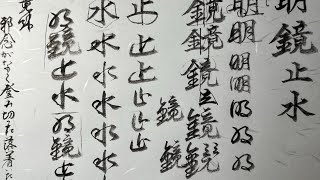 明鏡止水
明明明明明明
鏡鏡鏡鏡鏡
鏡鏡
止止止止止止
水水水水水水
明鏡止水明鏡止水
邪念がなく登み切った落着いた